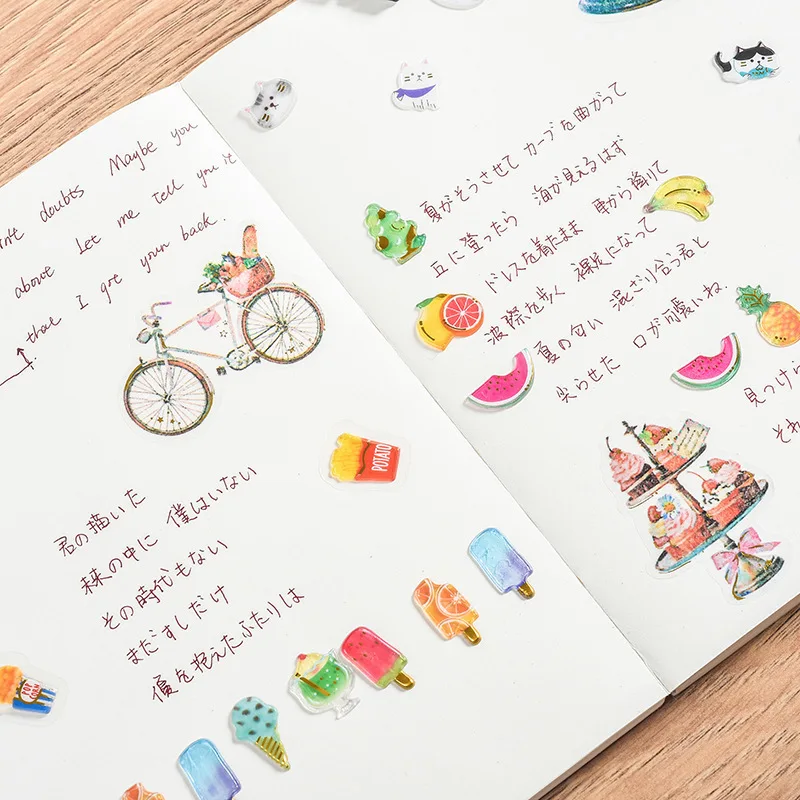 doubts Maybe you
above Let me tell you it
that I got your back.
君の描いた
未来の中に 僕はいない
その時代もない
まだすしだけ
優を抱えたふたりは
POTATO
CORN
夏がそうさせて カーブを曲がって
丘に登ったら 海が見えるはず
ドレスを着たまま 車から降りて
波際を歩く 裸足になって
夏の匂い 混ざり合う君と
尖らせた 口が可愛いね
見つけら
それ